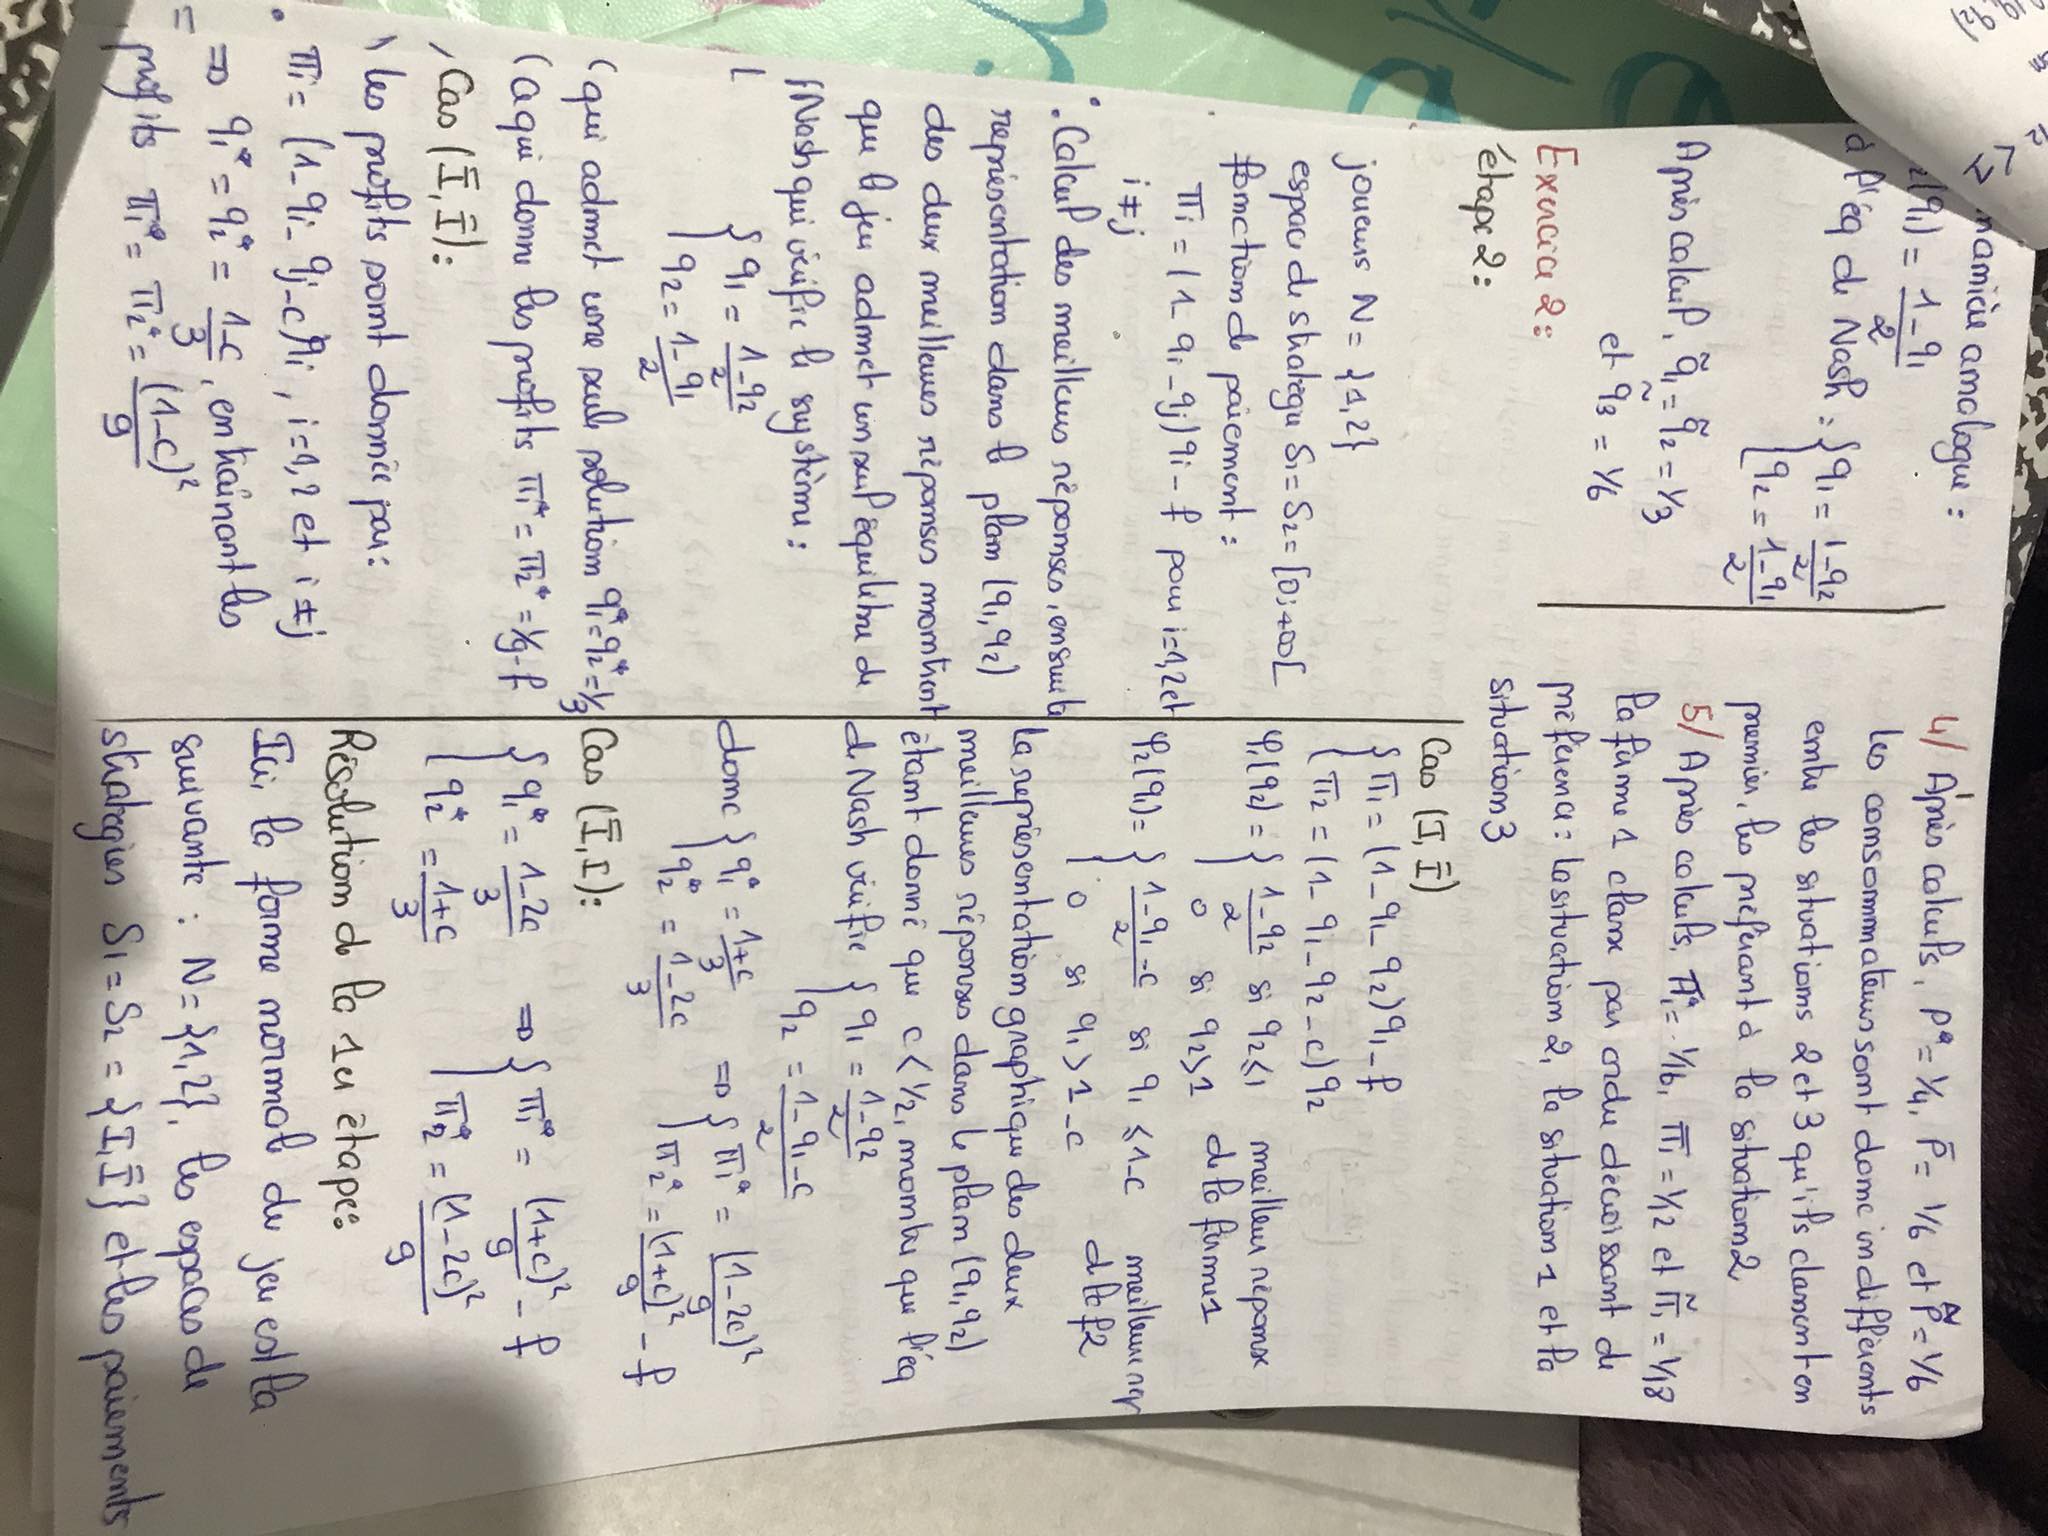 manière analogue :
2(q1) = 1-q1/2
à l'éq de Nash : { q1 = 1-q2/2
{ q2 = 1-q1/2
Après calcul, q̃1 = q̃2 = 1/3
et q̃3 = 1/6
Exercice 2 :
étape 2 :
joueurs N = {1,2}
espace de stratégie S1 = S2 = [0;+∞[
fonction de paiement :
πi = (1-qi-qj)qi - f pour i=1,2 et
i≠j
• Calcul des meilleures réponses, ensuite la
représentation dans le plan (q1,q2)
des deux meilleures réponses montrent
que le jeu admet un seul équilibre de
Nash qui vérifie le système :
{ q1 = 1-q2/2
{ q2 = 1-q1/2
qui admet une seule solution q1* = q2* = 1/3
ce qui donne les profits π1* = π2* = 1/9 - f
Cas (Ī, Ī) :
les profits sont donnée par :
πi = (1-qi-qj-c)qi, i=1,2 et i≠j
⇒ q1* = q2* = 1-c/3, entraînant les
profits π1* = π2* = (1-c)²/9
4/ Après calculs, P* = 1/4, P̄ = 1/6 et P̃ = 1/6
les consommateurs sont donc indifférents
entre les situations 2 et 3 qu'ils classent en
premier, les préférant à la situation 2
5/ Après calculs, π1* = 1/16, π̄1 = 1/12 et π̃1 = 1/18
la firme 1 classe par ordre décroissant de
préférence : la situation 2, la situation 1 et la
situation 3
Cas (I, Ī)
{ π1 = (1-q1-q2)q1 - f
{ π2 = (1-q1-q2-c)q2
φ1(q2) = { 1-q2/2 si q2 ≤ 1 meilleur réponse
{ 0 si q2 > 1 de la firme 1
φ2(q1) = { 1-q1-c/2 si q1 ≤ 1-c meilleure rep
{ 0 si q1 > 1-c de la f2
la représentation graphique des deux
meilleures réponses dans le plan (q1,q2)
étant donné que c < 1/2, montre que l'éq
de Nash vérifie { q1 = 1-q2/2
{ q2 = 1-q1-c/2
donc { q1* = 1+c/3 ⇒ { π1* = (1-2c)²/9
{ q2* = 1-2c/3 { π2* = (1+c)²/9 - f
Cas (Ī, I) :
{ q1* = 1-2c/3 ⇒ { π1* = (1+c)²/9 - f
{ q2* = 1+c/3 { π2* = (1-2c)²/9
Résolution de la 1er étape :
Ici, la forme normale du jeu est la
suivante : N = {1,2}, les espaces de
stratégies S1 = S2 = {I, Ī} et les paiements